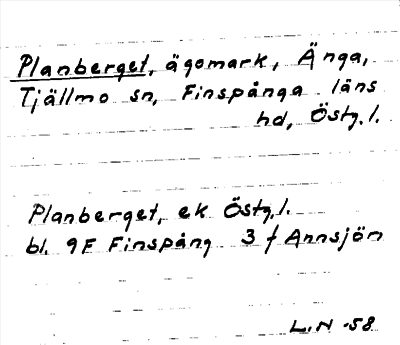 Planberget, ägomark, Änga,
Tjällmo sn, Finspånga läns
hd, Östg.l.
Planberget, ek Östg.l.
bl. 9F Finspång 3 f Annsjön
L.N -58